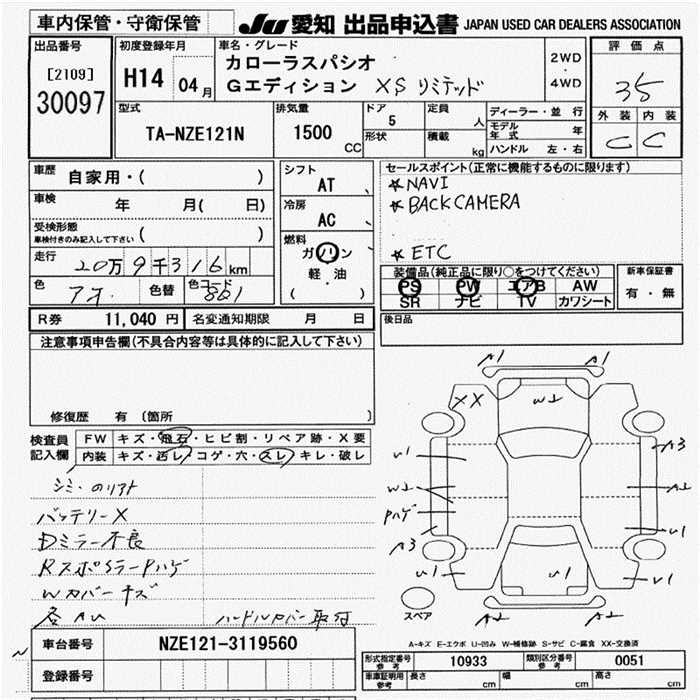 車内保管・守衛保管
JU 愛知 出品申込書 JAPAN USED CAR DEALERS ASSOCIATION
出品番号
[2109]
30097
初度登録年月
H14 04月
車名・グレード
カローラスパシオ
Gエディション XS リミテッド
2WD
・
4WD
評価点
35
外装 内装
C C
型式
TA-NZE121N
排気量
1500 CC
ドア
5
形状
定員
人
積載
kg
ディーラー・並行
モデル年式 年
ハンドル 左・右
車歴 自家用・( )
車検 年 月( 日)
受検形態
車検付きのみ記入して下さい ( )
走行 20万9千316km
色 アオ. 色替 色コード 8G1
シフト
AT
冷房
AC
燃料
ガソリン
軽・油
( )
セールスポイント(正常に機能するものに限ります)
★NAVI
★BACK CAMERA
★ETC
装備品(純正品に限り○をつけてください)
PS PW エアB AW
SR ナビ TV カワシート
新車保証書
有・無
R券 11,040円 名変通知期限 月 日
後日品
注意事項申告欄(不具合内容等は具体的に記入して下さい)
修復歴 有(箇所 )
検査員記入欄
FW キズ・飛石・ヒビ割・リペア跡・X要
内装 キズ・汚レ・コゲ・穴・スレ・キレ・破レ
シミ・のリアト
バッテリーX
Dミラー不良
RスポイラーPハゲ
Wカバーキズ
各AU ハンドルカバー取付
A1 A1
XX
W1
U1
W2
Pハゲ
A3
U1
A3
A2
U1
U1
U1
A2 A2
スペア
A-キズ E-エクボ U-凹み W-補修跡 S-サビ C-腐食 XX-交換済
車台番号 NZE121-3119560
登録番号
形式指定番号参考 10933 類別区分番号参考 0051
車庫証明用参考 長さ cm 幅 cm 高さ cm